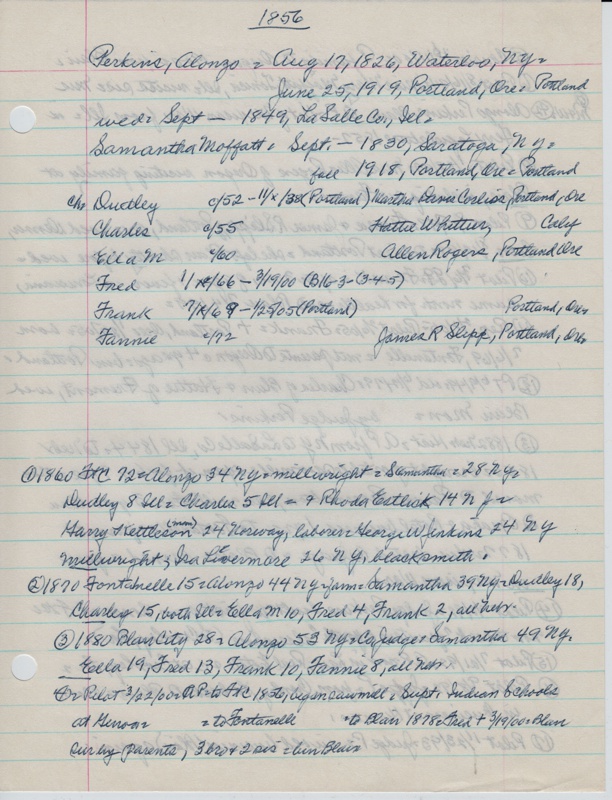 1856
Perkins, Alonzo = Aug 17, 1826, Waterloo, Ny =
June 25, 1919, Portland, Ore = Portland
wed = Sept — 1849, La Salle Co., Ill =
Samantha Moffatt = Sept. — 1830, Saratoga, Ny =
fall 1918, Portland, Ore = Portland
ch = Dudley c/52 - 11/x/38 (Portland) Martha Dorris Corliss, Portland, Ore
Charles c/55 Hattie Whittier, Calif
Ella M c/60 Allen Rogers, Portland Ore
Fred 1/x/66 - 3/19/00 (B16-3-(3-4-5)
Frank 7/x/69 - 1/25/05 (Portland) Portland, Ore
Fannie c/72 James R Slipp, Portland, Ore
① 1860 FtC 72 = Alonzo 34 Ny = millwright = Samantha = 28 Ny =
Dudley 8 Ill = Charles 5 Ill = & Rhoda Eatlick 14 N J =
Harry Kettleson (mm) 24 Norway, laborer = George W Jenkins 24 NY
millwright & Ira Livermore 26 NY, blacksmith.
② 1870 Fontanelle 15 = Alonzo 44 Ny = farm = Samantha 39 Ny = Dudley 18,
Charley 15, both Ill = Ella M 10, Fred 4, Frank 2, all Neb.
③ 1880 Blair City 28 = Alonzo 53 Ny = Co Judge = Samantha 49 Ny =
Ella 19, Fred 13, Frank 10, Fannie 8, all Neb.
Pilot 3/22/00 = to FtC 1856, sawmill = Supt. Indian Schools
at Genoa = to Fontanelle = to Blair 1878 = Fred + 3/19/00 = Blair
sur by parents, 3 bro & 2 sis = bur Blair